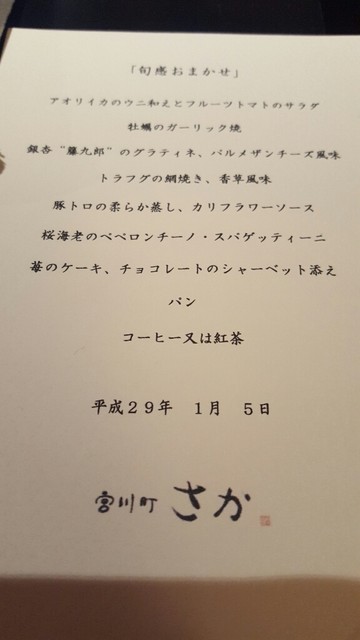 「旬感おまかせ」
アオリイカのウニ和えとフルーツトマトのサラダ
牡蠣のガーリック焼
銀杏“藤九郎”のグラティネ、パルメザンチーズ風味
トラフグの網焼き、香草風味
豚トロの柔らか蒸し、カリフラワーソース
桜海老のペペロンチーノ・スパゲッティーニ
苺のケーキ、チョコレートのシャーベット添え
パン
コーヒー又は紅茶
平成29年 1月 5日
宮川町 さか